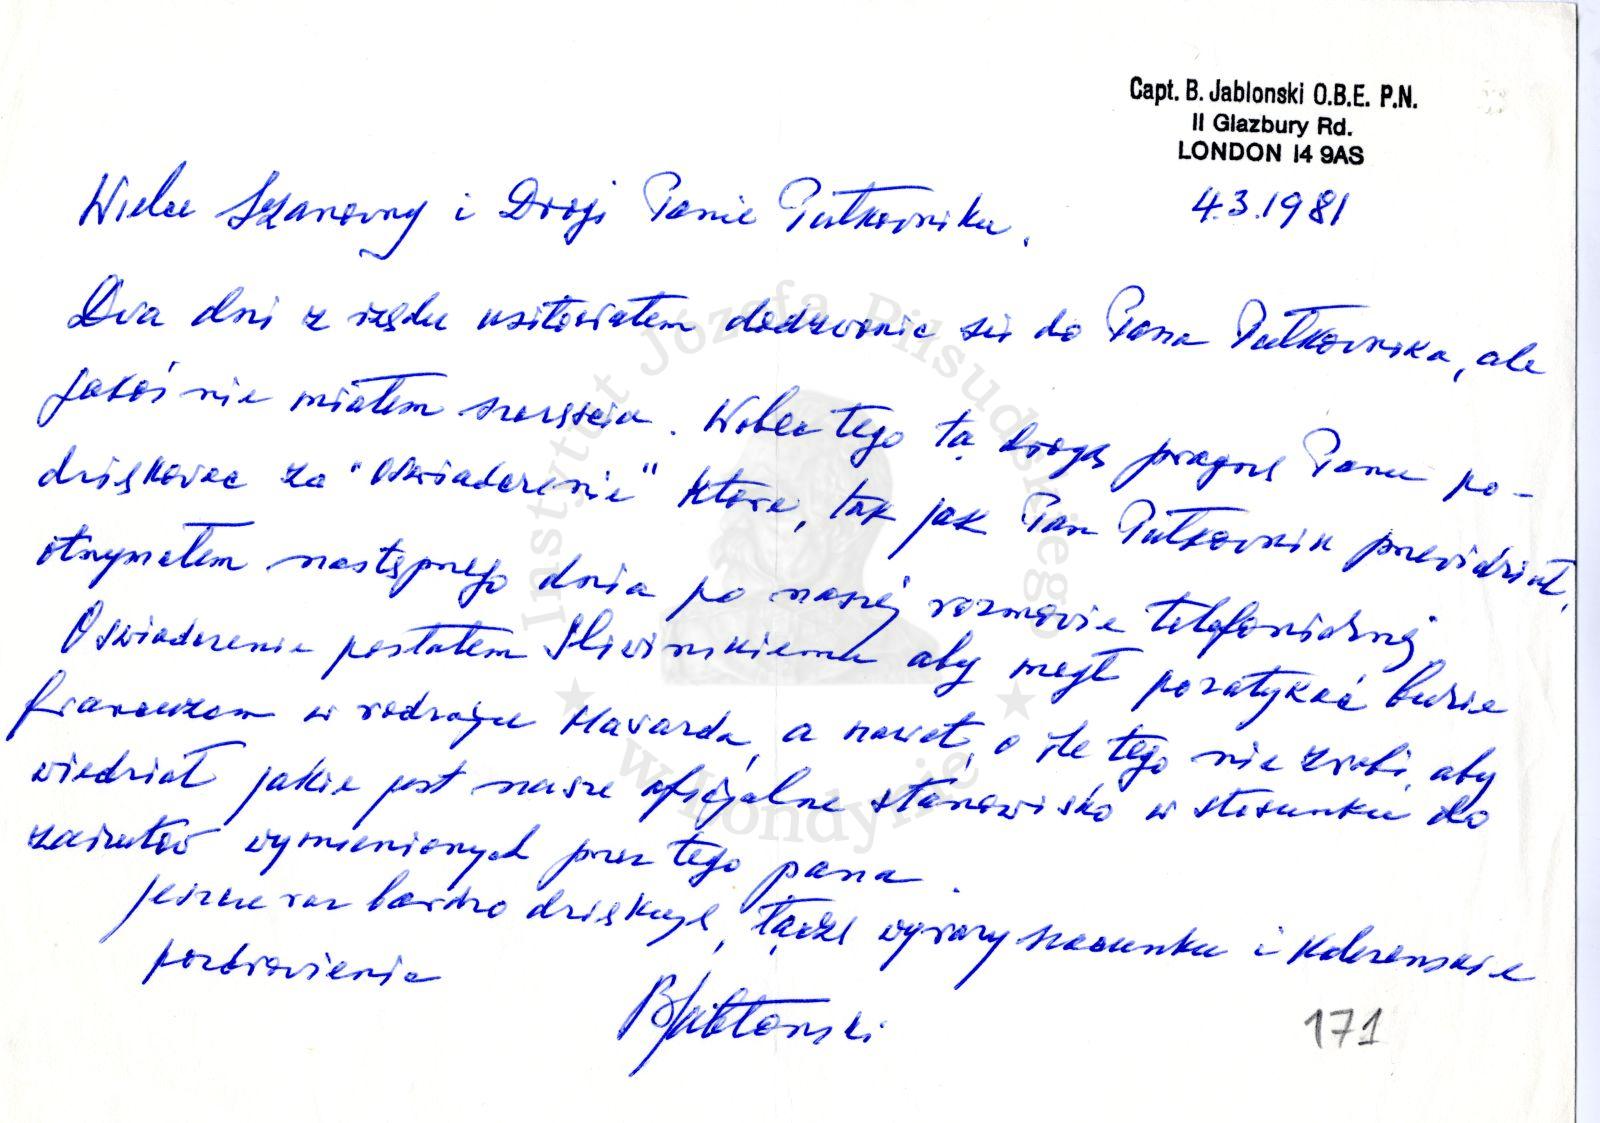 Capt. B. Jablonski O.B.E. P.N.
11 Glazbury Rd.
LONDON 14 9AS
4.3.1981
Wielce Szanowny i Drogi Panie Pułkowniku.
Dwa dni z rzędu usiłowałem dodzwonić się do Pana Pułkownika, ale
jakoś nie miałem szczęścia. Wobec tego tą drogą pragnę Panu po-
dziękować za "Oświadczenie" które, tak jak Pan Pułkownik przewidział,
otrzymałem następnego dnia po naszej rozmowie telefonicznej.
Oświadczenie posłałem Śliwińskiemu aby mógł pozatykać buzie
francuzom w rodzaju Havarda, a nawet, o ile tego nie zrobi, aby
wiedział jakie jest nasze oficjalne stanowisko w stosunku do
zarzutów wymienionych przez tego pana.
Jeszcze raz bardzo dziękuję, łączę wyrazy szacunku i koleżeńskie
pozdrowienia
BJabłoński
171
Instytut Józefa Piłsudskiego
w Londynie